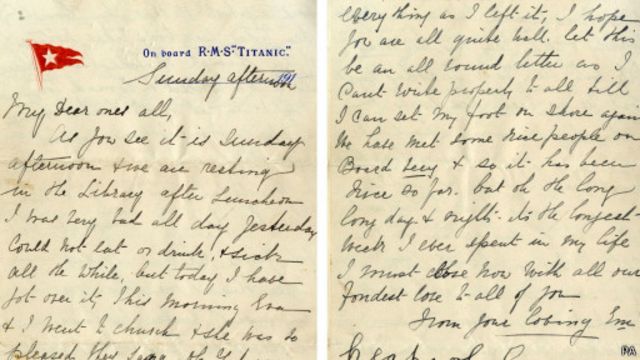 On board R·M·S "TITANIC."
Sunday afternoon
My Dear ones all,
As you see it is Sunday
afternoon & we are resting
in the Library after Luncheon
I was very bad all day Yesterday
Could not eat or drink, & sick
all the while, but today I have
got over it, This morning Eva
& I went to church & she was so
pleased they sang
everything as I left it, I hope
you are all quite well. let this
be an all round letter as I
Cant write properly to all till
I can set my foot on shore again
We have met some nice people on
Board Lucy & so it has been
nice so far. but oh the long
long days & nights. its the longest
week I ever spent in my life
I must close now with all our
fondest love to all of you
from your loving Em
PA